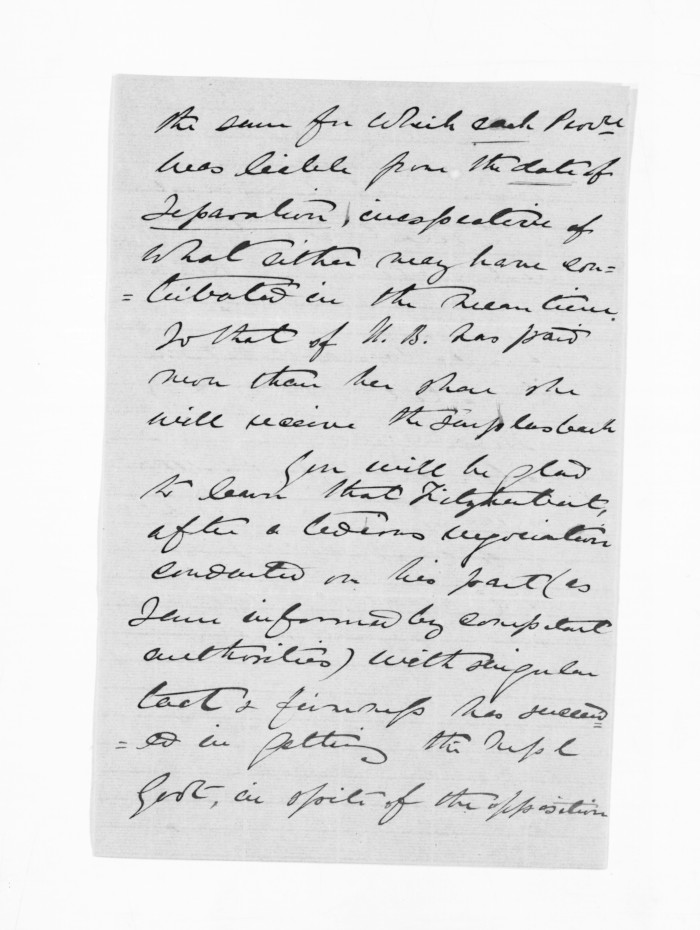 the sum for which each Provce
was liable from the date of
Separation, irrespective of
what either may have con=
=tributed in the meantime.
So that if H. B. has paid
more than her share she
will receive the surplus back
You will be glad
to learn that Fitzherbert,
after a tedious negociation
conducted on his part (as
I am informed by competent
authorities) with singular
tact & firmness has succeed=
=ed in getting the
Govt, in spite of the opposition